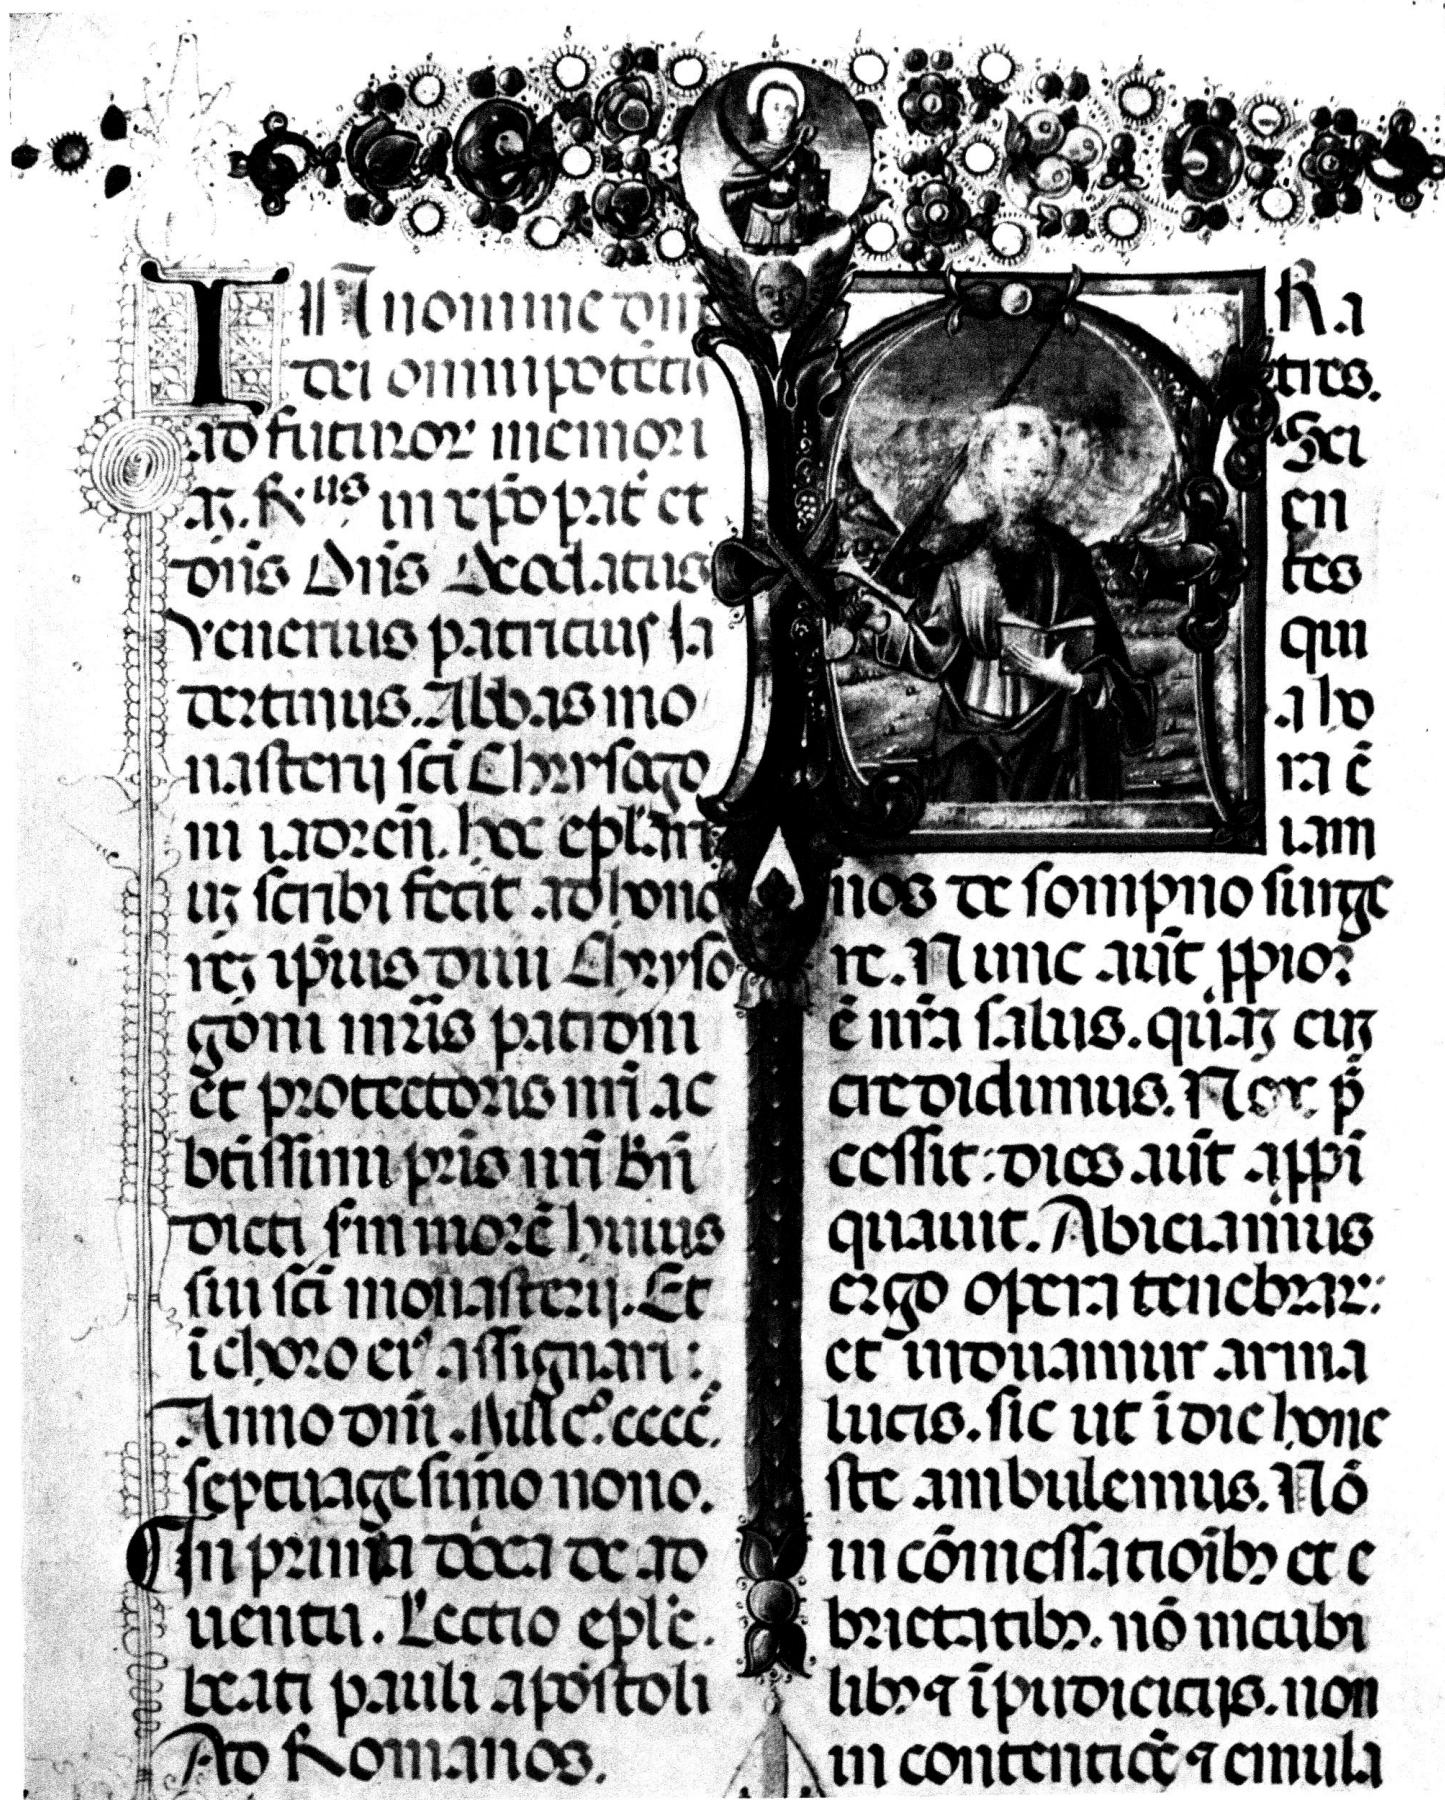 IN nomine dn̄i
dei omnipotētis
ad futuror memori
aꝫ. R.us in xp̄o pat̄ et
dn̄s Dn̄s Deodatus
Venerius patricius Ja
dertinus. Abbas mo
nasterij sc̄i Chrysogo
ni iadreñ. hoc ep̄lari
uꝫ scribi fecit ad hono
reꝫ ip̄ius diui Chryso
goni mr̄is patroni
et protectoris nr̄i ac
bt̄issimi pr̄is nr̄i Bn̄
dicti ſm̄ morē huius
sui sc̄i monasterij. Et
ī choro ei assignari:
Anno dn̄i. Mill̄o. cccc.
septuagesimo nono.
In prima doc̄a de ad
uentu. Lectio ep̄le.
beati pauli apostoli
Ad Romanos.
FRa
tres.
Sci
en
tes
qui
a ho
ra ē
iam
nos de sompno surge
re. Nunc aūt ꝓpior
ē nr̄a salus. quaꝫ cuꝫ
credidimus. Nox p̄
cessit: dies aūt appī
quauit. Abiciamus
ergo opera tenebrar:
et induamur arma
lucis. sic ut ī die hone
ste ambulemus. Nō
in cōmessatioībꝫ et e
brietatibꝫ. nō in cubi
libꝫ ⁊ īpudicitijs. non
in contentiōe ⁊ emula